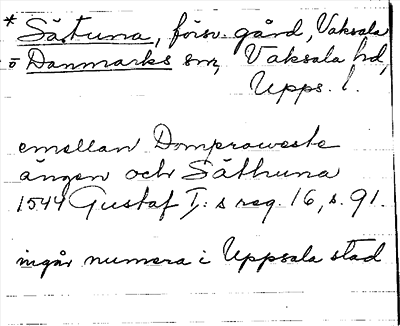 * Sätuna, försv. gård, Vaksala
o Danmarks snr, Vaksala hd,
Upps. l.
emellan Dompraweste
ängen och Säthuna
1544 Gustaf I:s reg. 16, s. 91.
ingår numera i Uppsala stad